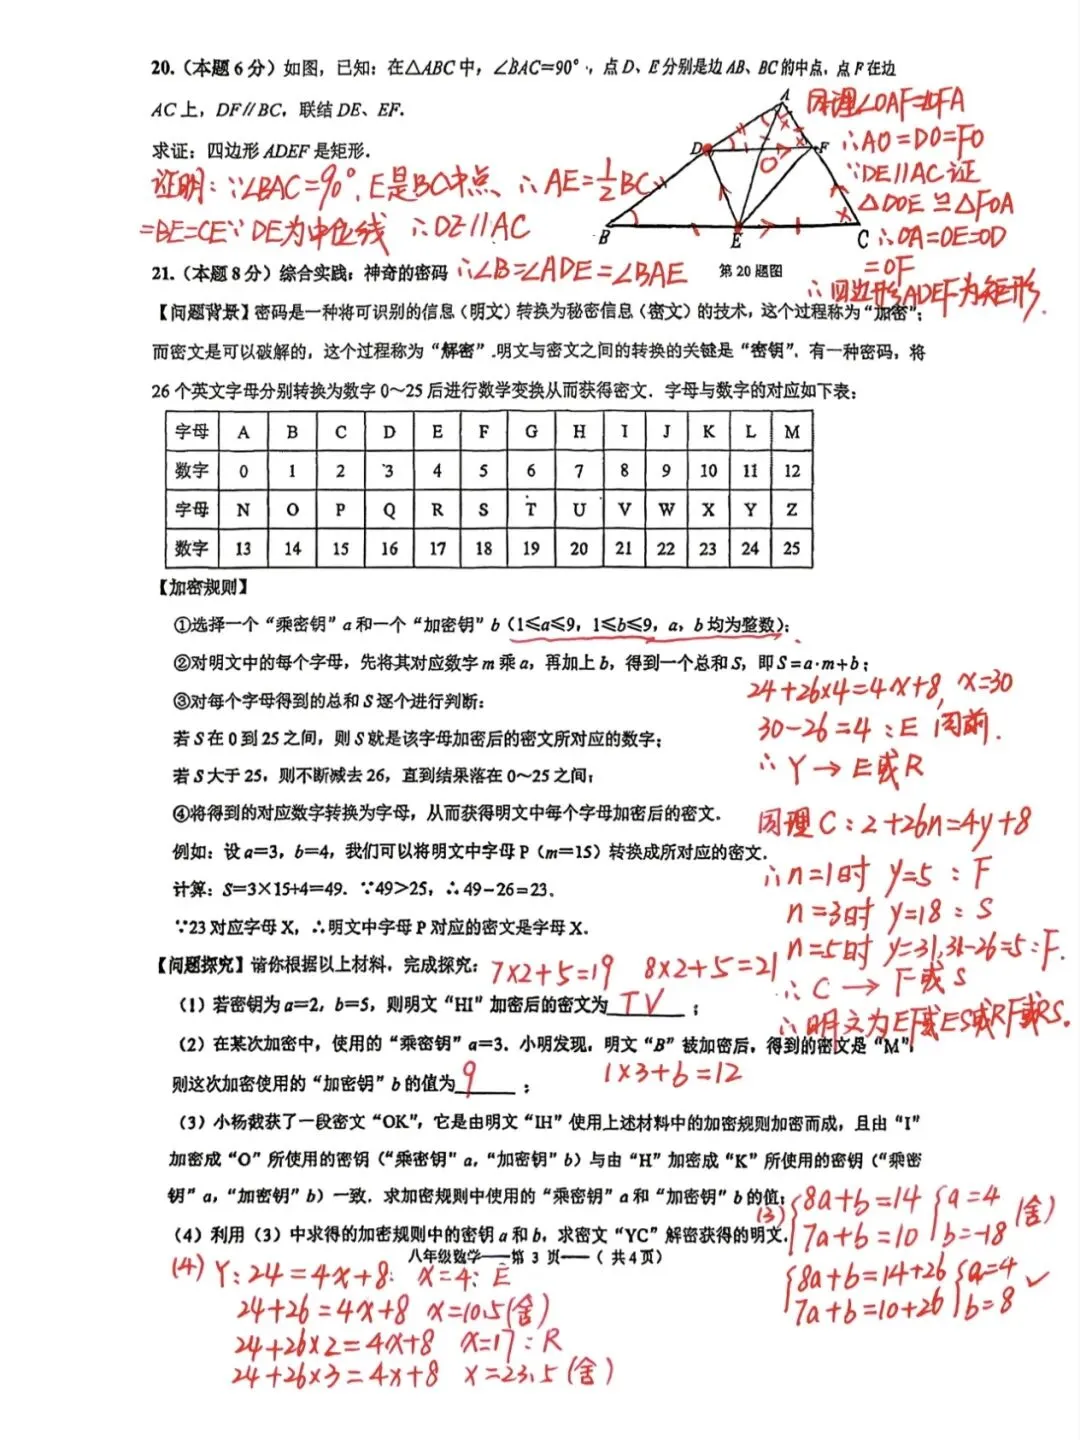 20.（本题 6 分）如图，已知：在△ABC 中，∠BAC=90°，点 D、E 分别是边 AB、BC 的中点，点 F 在边
AC 上，DF∥BC，联结 DE、EF.
求证：四边形 ADEF 是矩形．
证明：∵∠BAC=90°, E是BC中点、∴AE=½BC
=BE=CE∵DE为中位线 ∴DE∥AC
∴∠B=∠ADE=∠BAE
A
D
F
O
B
E
C
第 20 题图
同理∠OAF=∠OFA
∴AO=DO=FO
∵DE∥AC证
△DOE≌△FOA
∴OA=OE=OD
=OF
∴四边形ADEF为矩形.
21.（本题 8 分）综合实践：神奇的密码
【问题背景】密码是一种将可识别的信息（明文）转换为秘密信息（密文）的技术，这个过程称为“加密”；
而密文是可以破解的，这个过程称为“解密”.明文与密文之间的转换的关键是“密钥”．有一种密码，将
26 个英文字母分别转换为数字 0～25 后进行数学变换从而获得密文．字母与数字的对应如下表：
字母 A B C D E F G H I J K L M
数字 0 1 2 3 4 5 6 7 8 9 10 11 12
字母 N O P Q R S T U V W X Y Z
数字 13 14 15 16 17 18 19 20 21 22 23 24 25
【加密规则】
①选择一个“乘密钥”a 和一个“加密钥”b（1≤a≤9，1≤b≤9，a，b 均为整数）；
②对明文中的每个字母，先将其对应数字 m 乘 a，再加上 b，得到一个总和 S，即 S=a·m+b；
③对每个字母得到的总和 S 逐个进行判断：
若 S 在 0 到 25 之间，则 S 就是该字母加密后的密文所对应的数字；
若 S 大于 25，则不断减去 26，直到结果落在 0～25 之间；
④将得到的对应数字转换为字母，从而获得明文中每个字母加密后的密文．
例如：设 a=3，b=4，我们可以将明文中字母 P（m=15）转换成所对应的密文．
计算：S=3×15+4=49．∵49>25，∴49-26=23．
∵23 对应字母 X，∴明文中字母 P 对应的密文是字母 X．
24+26×4=4x+8, x=30
30-26=4 : E 同前.
∴ Y→E或R
同理 C: 2+26n=4y+8
∴n=1时 y=5 : F
n=3时 y=18 : S
n=5时 y=31,31-26=5:F.
∴ C → F或S
∴明文为EF或ES或RF或RS.
【问题探究】请你根据以上材料，完成探究：
7×2+5=19 8×2+5=21
（1）若密钥为 a=2，b=5，则明文“HI”加密后的密文为 TV ；
（2）在某次加密中，使用的“乘密钥”a=3．小明发现，明文“B”被加密后，得到的密文是“M”，
则这次加密使用的“加密钥”b 的值为 9 ；
1×3+b=12
（3）小杨截获了一段密文“OK”，它是由明文“IH”使用上述材料中的加密规则加密而成，且由“I”
加密成“O”所使用的密钥（“乘密钥”a，“加密钥”b）与由“H”加密成“K”所使用的密钥（“乘密
钥”a，“加密钥”b）一致．求加密规则中使用的“乘密钥”a 和“加密钥”b 的值；
（4）利用（3）中求得的加密规则中的密钥 a 和 b，求密文“YC”解密获得的明文．
八年级数学——第 3 页——（ 共 4 页）
(3) 8a+b=14 a=4
7a+b=10 b=-18 (舍)
8a+b=14+26 a=4
7a+b=10+26 b=8 ✓
(4) Y: 24=4x+8: x=4: E
24+26=4x+8 x=10.5(舍)
24+26×2=4x+8 x=17 : R
24+26×3=4x+8 x=23.5(舍)